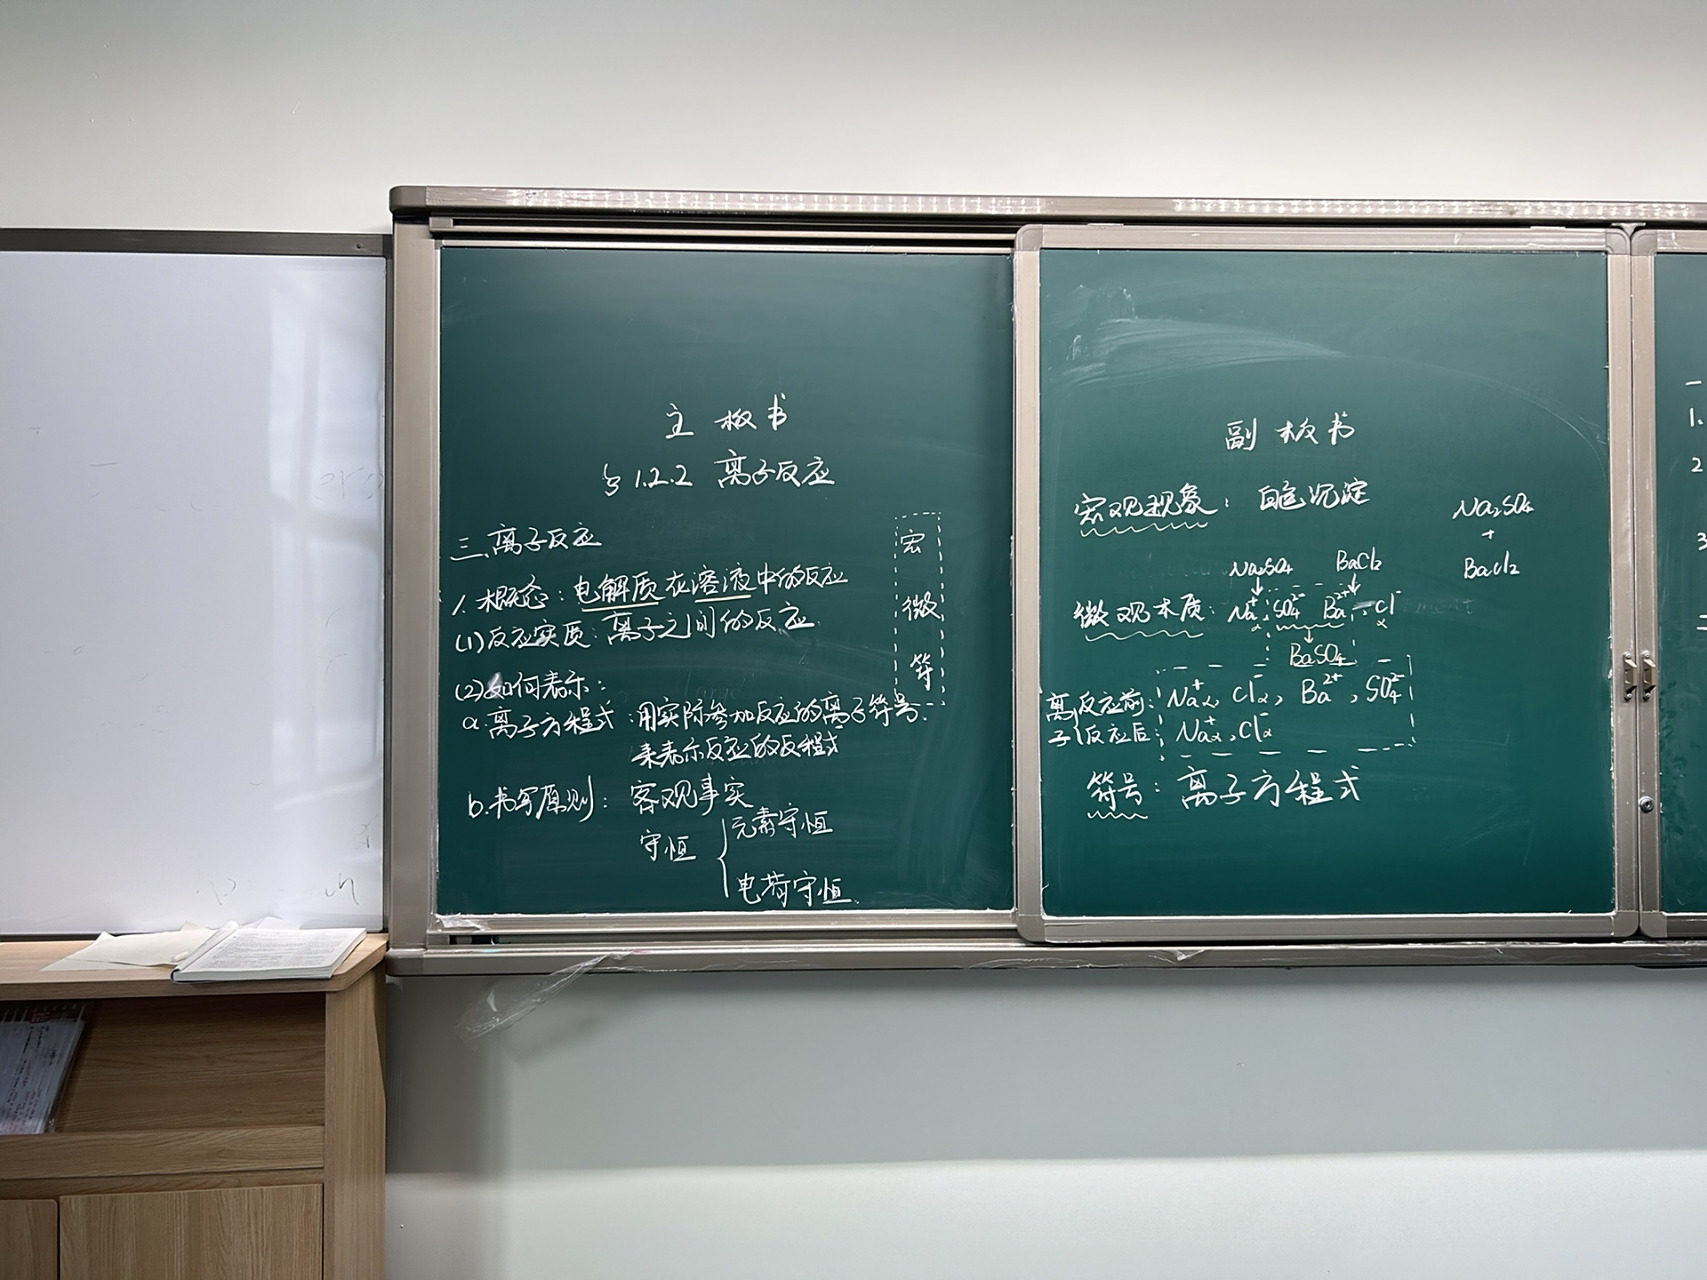 主板书
§1.2.2 离子反应
三、离子反应
1. 概念：电解质在溶液中的反应
(1)反应实质：离子之间的反应.
(2)如何表示：
a.离子方程式：用实际参加反应的离子符号.
来表示反应的反程式
b.书写原则：客观事实
守恒
元素守恒
电荷守恒.
宏
微
符
副板书
宏观现象：白色沉淀
Na₂SO₄
+
BaCl₂
Na₂SO₄ BaCl₂
微观本质：Na⁺ SO₄²⁻ Ba²⁺ Cl⁻
BaSO₄
离子
反应前：Na⁺, Cl⁻, Ba²⁺, SO₄²⁻
反应后：Na⁺, Cl⁻
符号：离子方程式
1.
2
3